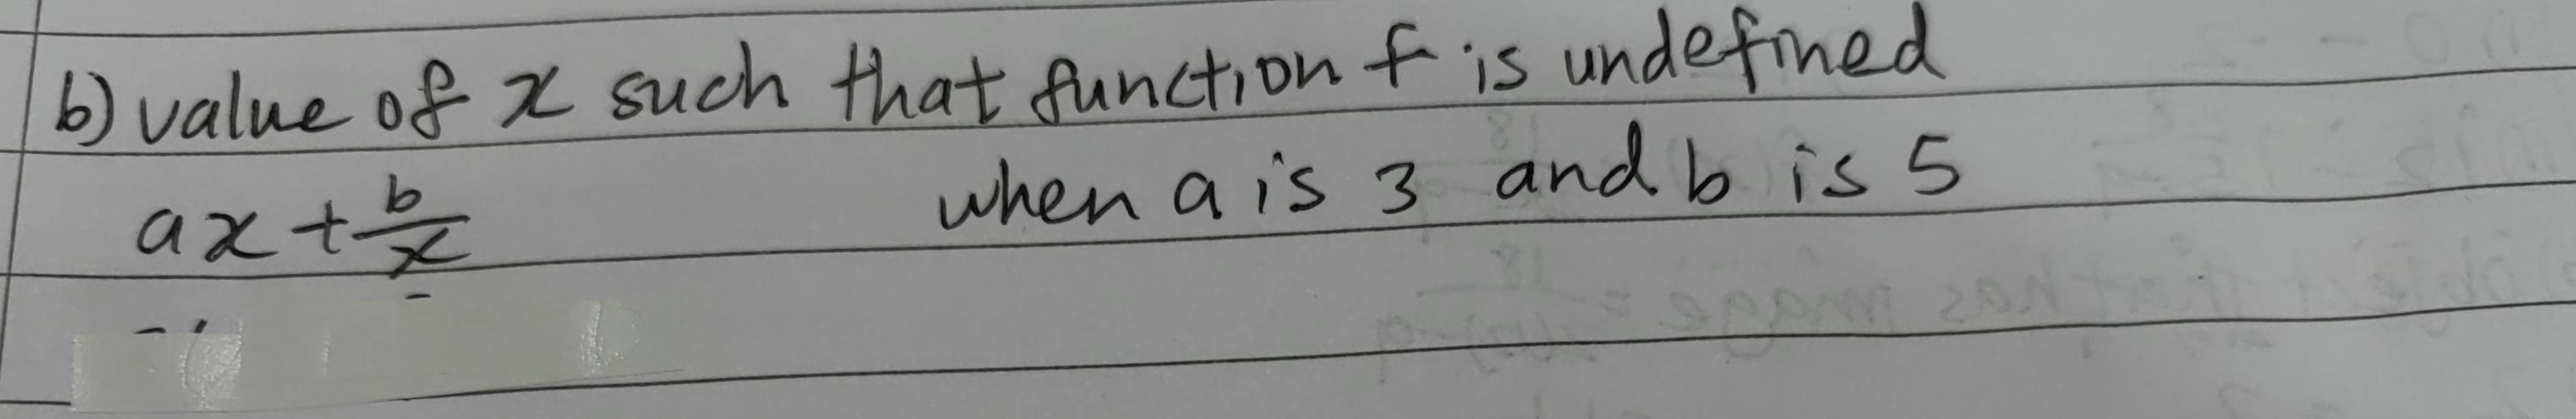 b) value of x such that function f is undefined
ax + b/x when a is 3 and b is 5